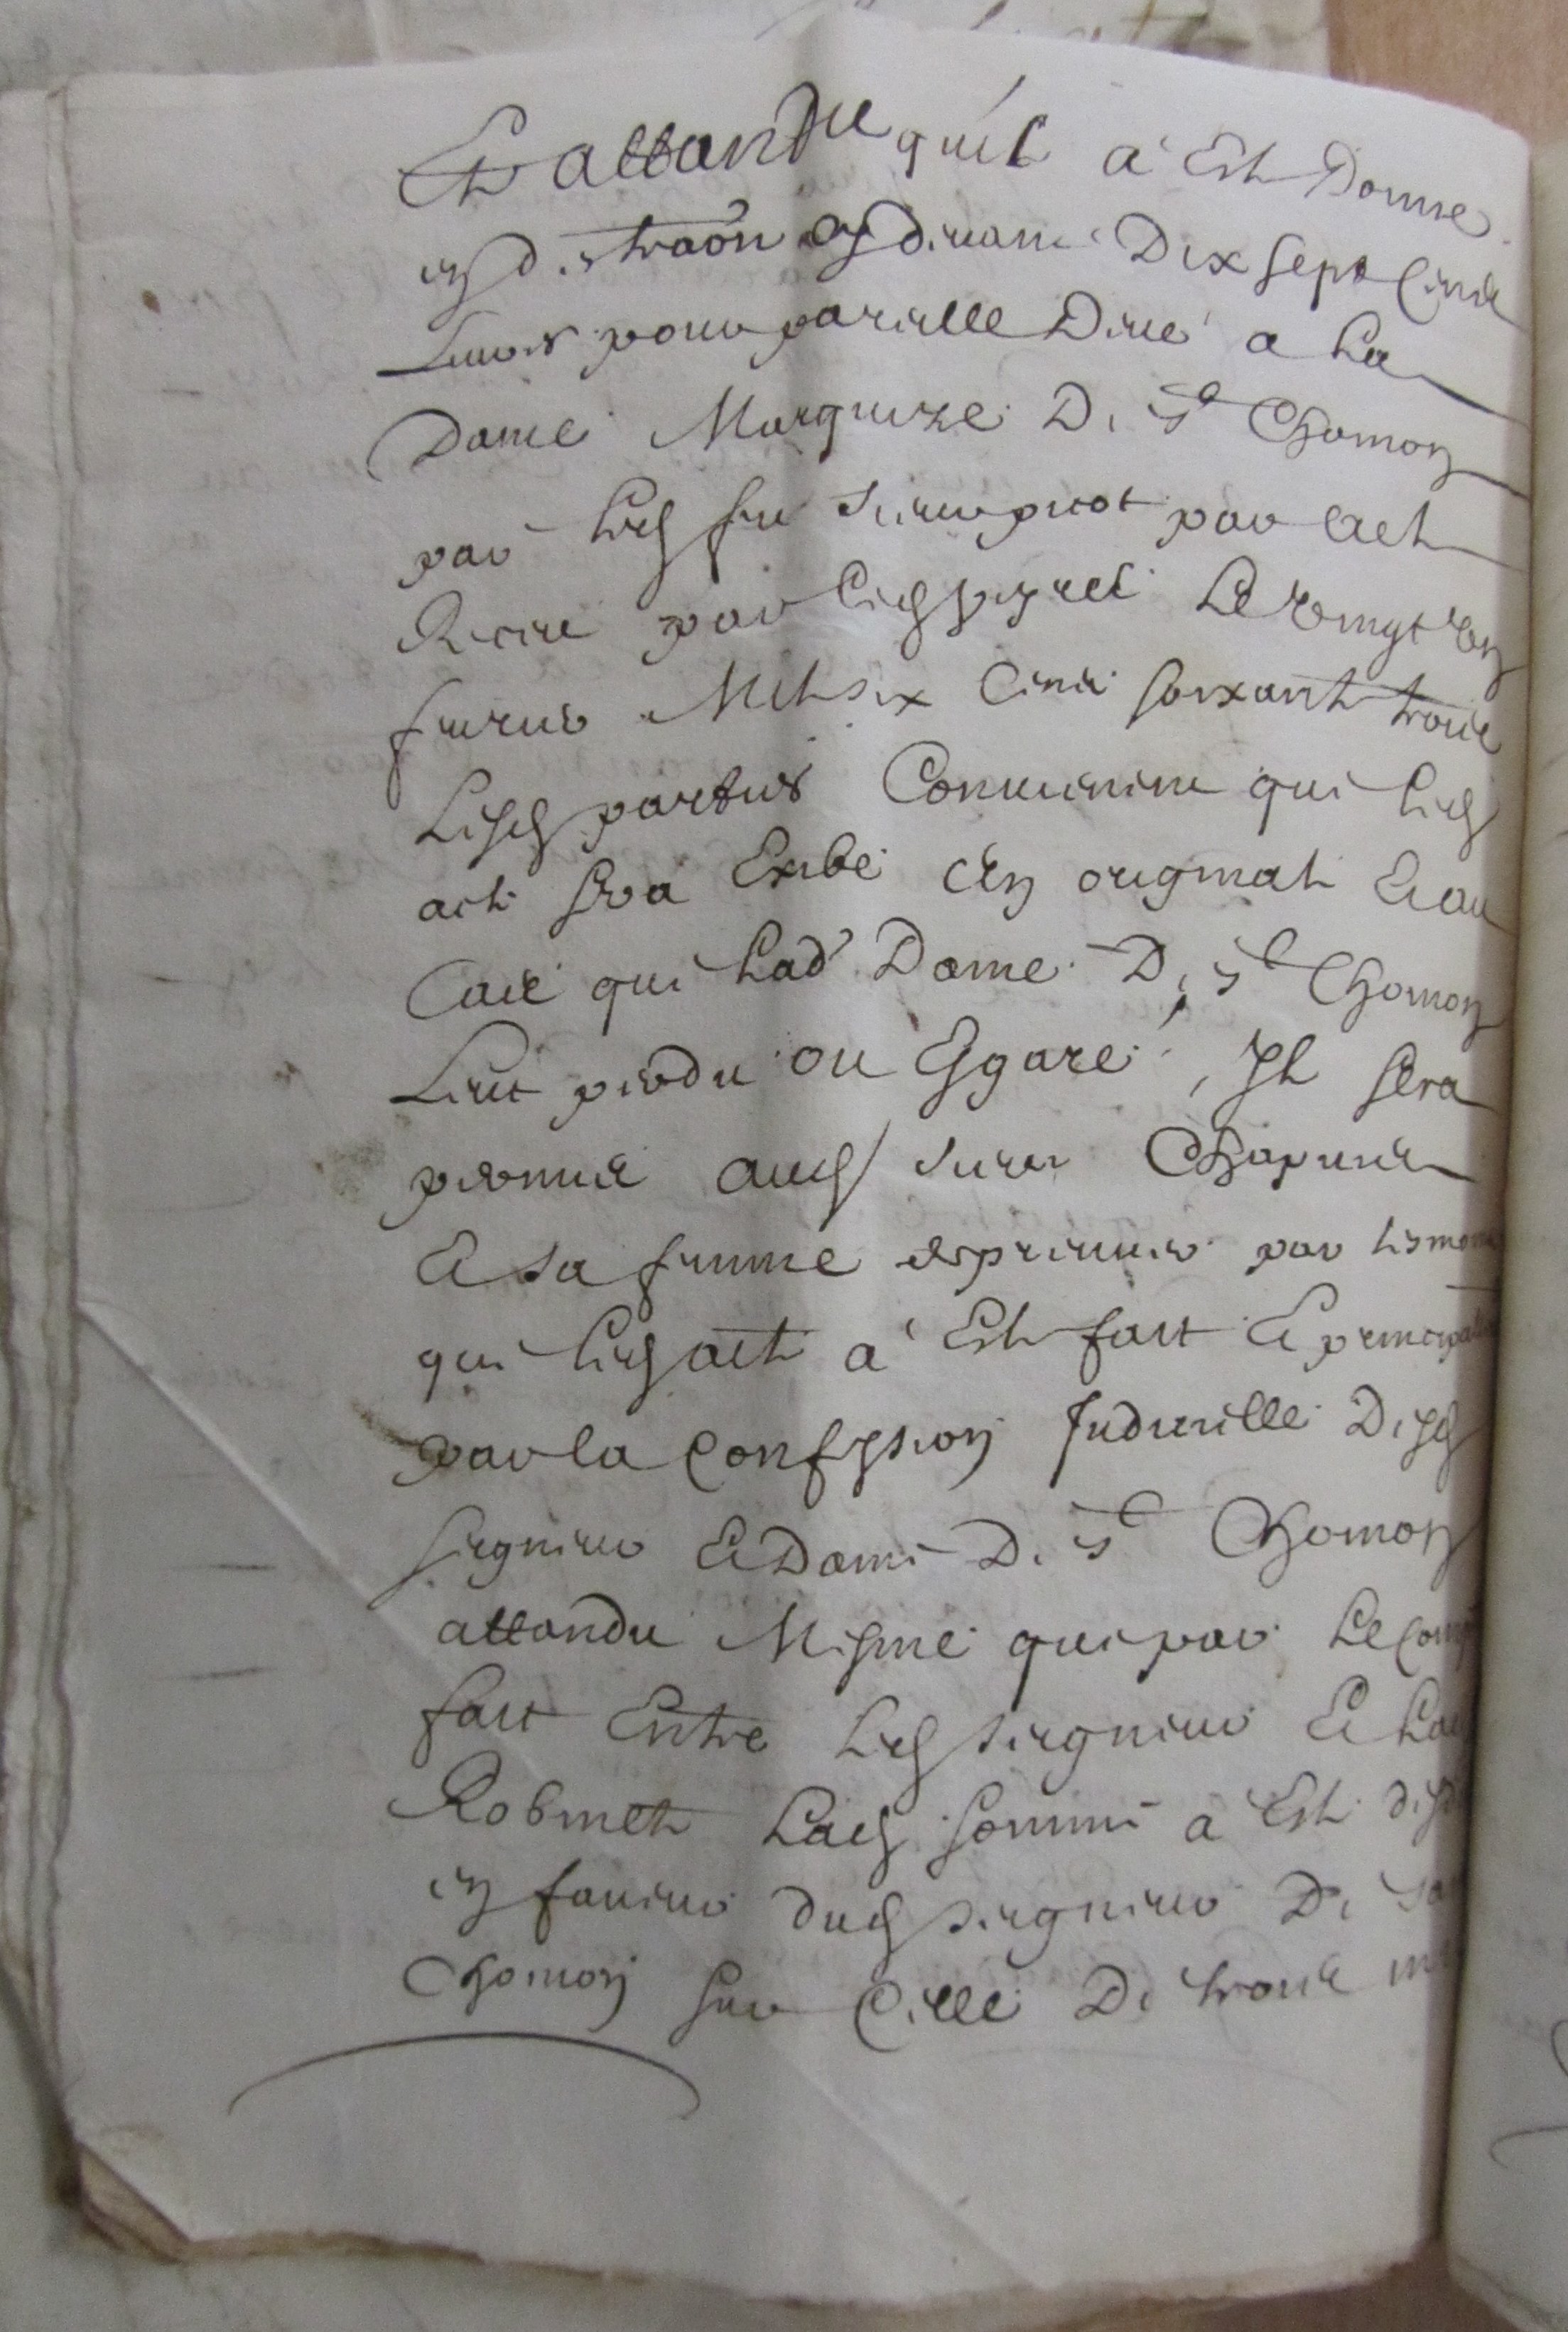 Et attandu quil a Esté Donné
en distraõn cy divant Dix sept Cens
Livres pour pareille Diue a La
Dame Marquize De St Chomon
par led feu sieur pierot par acte
Receu par led Le vingt six
feuvrier Mil six Cens soixante trois
Lesd parties Conviennent que led
acte sera Exibé En original Et au
Cas que lad Dame De St Chomon
Leut perdu ou Esgaré, Il sera
permis aud sieur Chapuis
Et sa femme desprouuer par tesmoins
que led acte a Esté fait Et principal
par la Confession Judicielle Desd
seigneur Et Dame De St Chomon
attandu Mesme que par Le
fait Entre Led seigneur Et Lad
Robinet Lad somme a Esté
en faveur dud seigneur De
Chomon sur Celle De trois